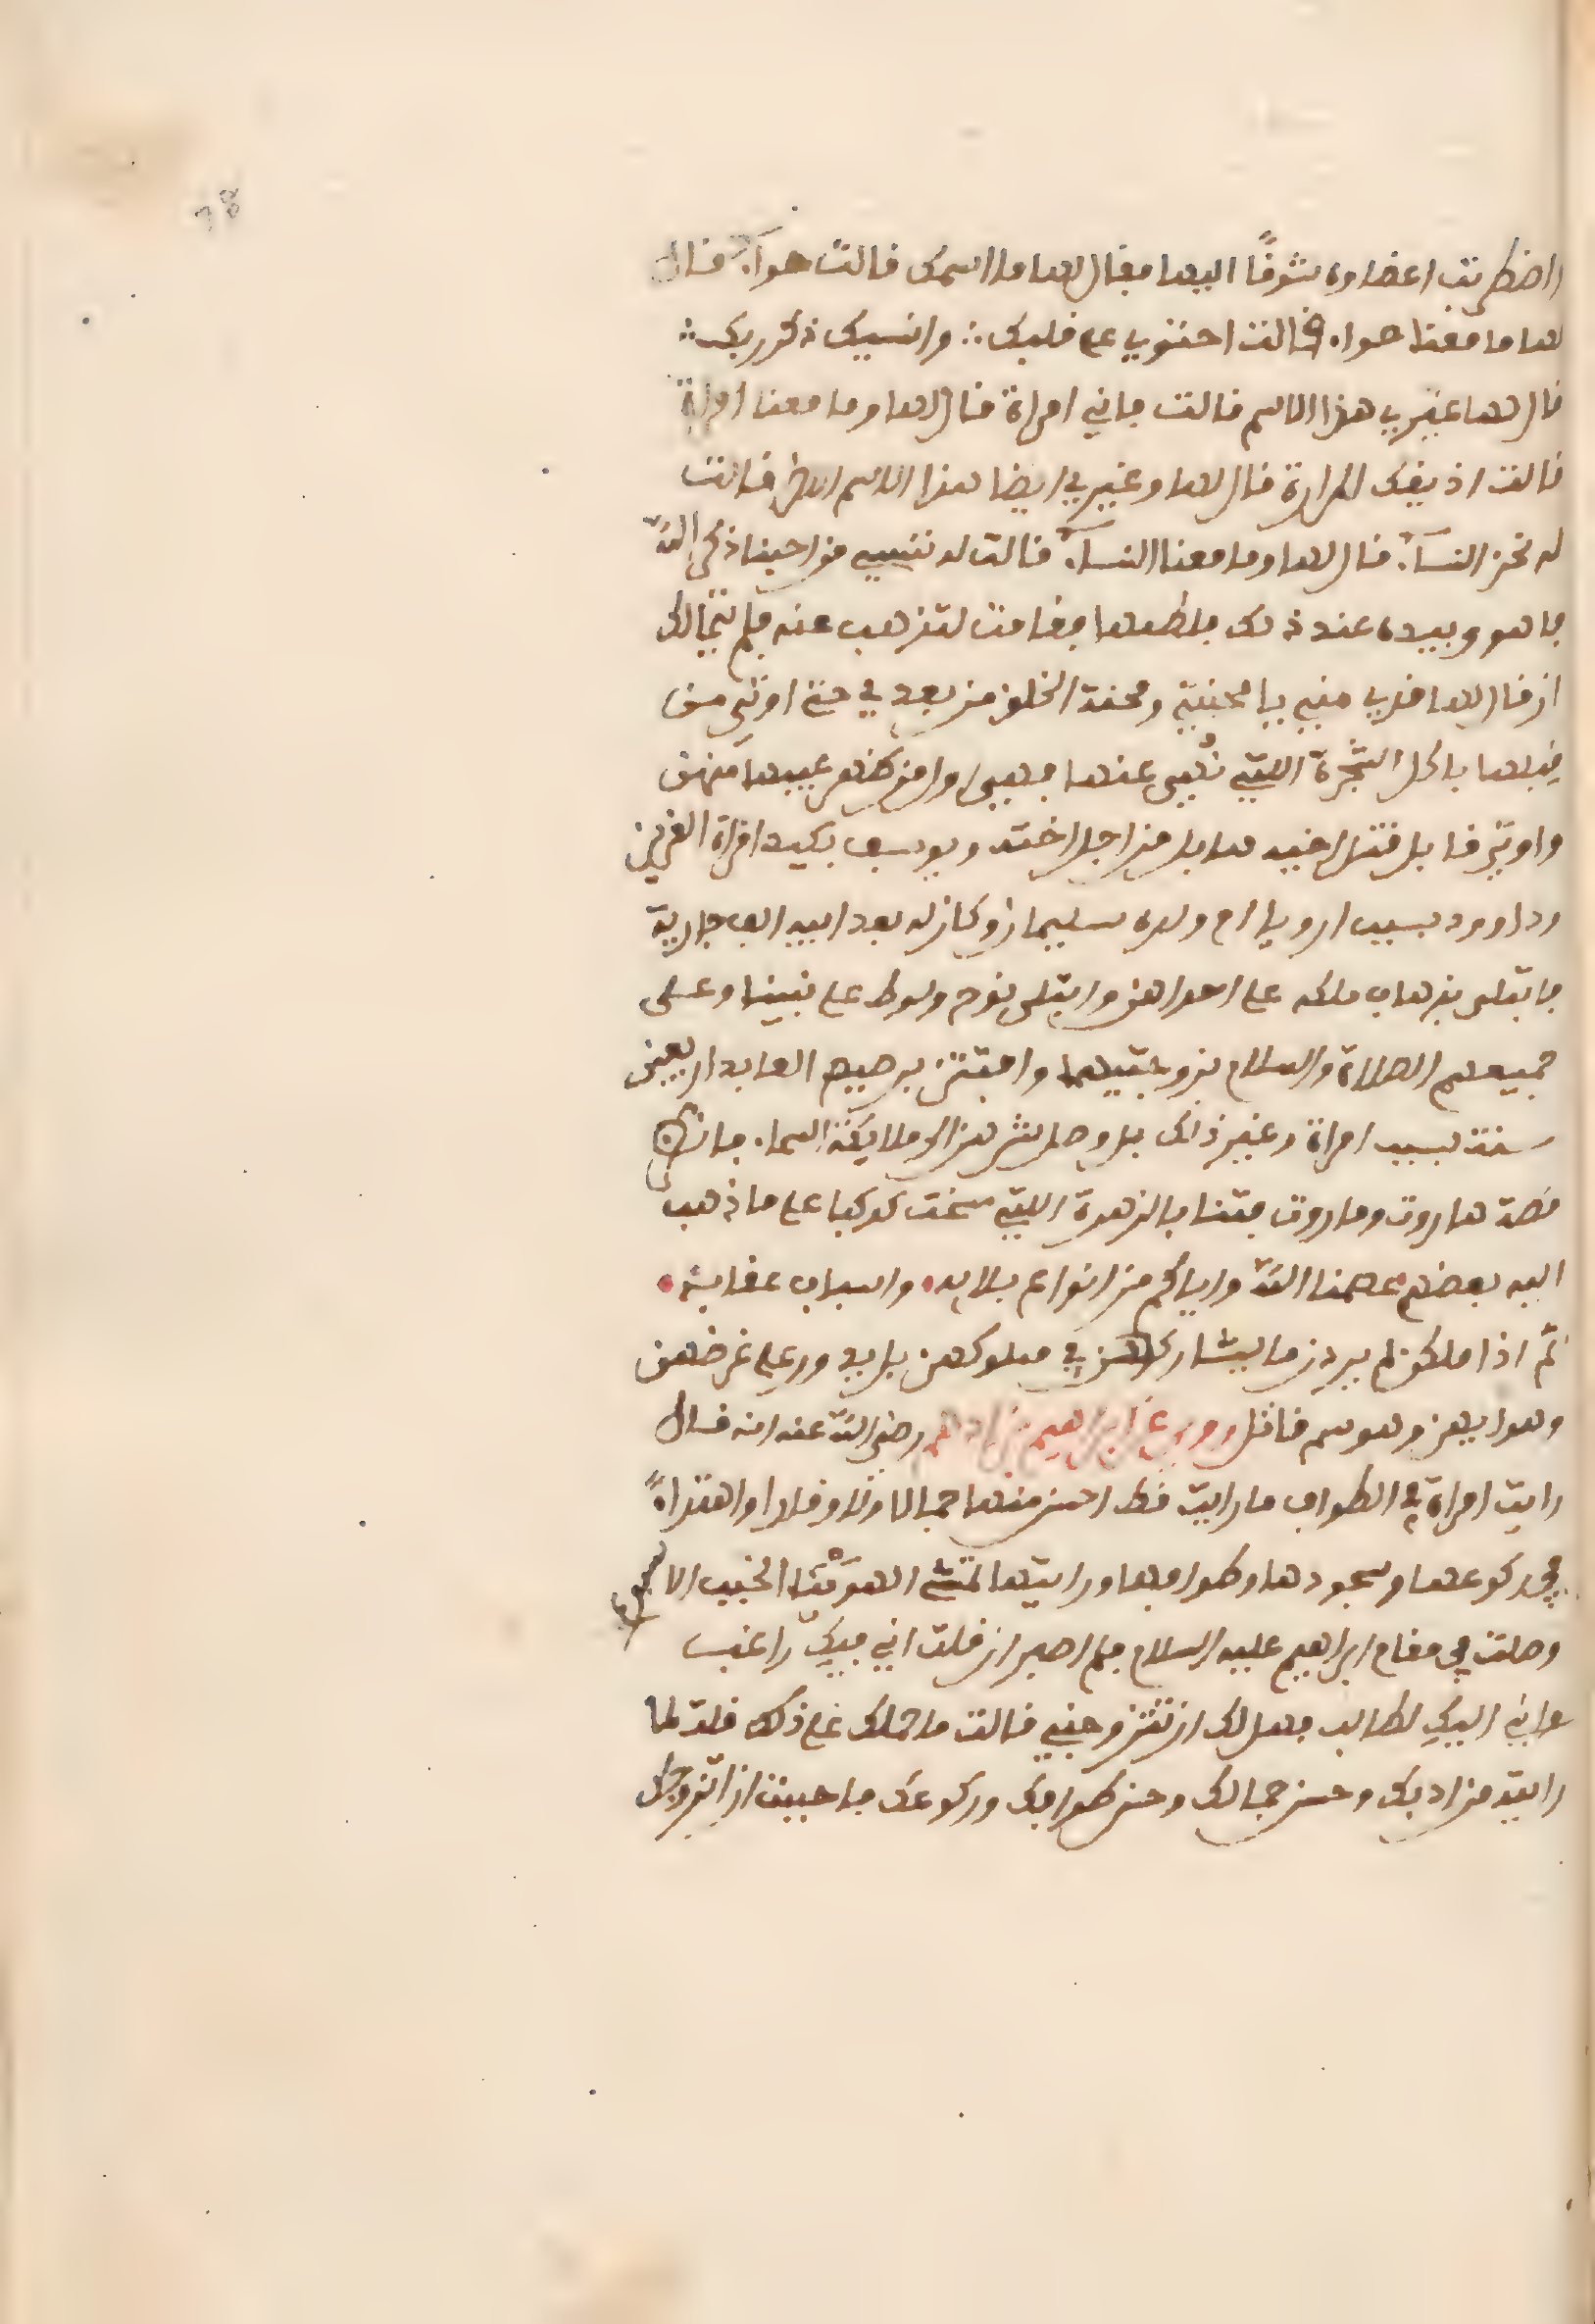 واضطربت اعضاوه شوقًا اليها فقال لها ما اسمك قالت حوآء قال
لها ما معنا حواء قالت احتوي على قلبك ∴ وانسيك ذكر ربك ∴
قال لها غيري هذا الاسم قالت فاني امراة قال لها وما معنا امراة
قالت اذيقك المرارة قال لها وغيري ايضا هذا الاسم قالت
له نحن النسآء قال لها وما معنا النسآء قالت له ننسي من احبنا ذكر اللّه
فاهو وبيده عند ذلك فلطمها فقامت لتذهب عنه فلم يتمالك
ان قال لها قربي مني يا محنتي ومحنة الخلق من بعدي حتى اوتي من
قبلها باكل الشجرة اللتي نُهي عنها فهي اول من ظهر عيبها منهن
واوتي قابل قتل اخيه هابل من اجل اخته ويوسف بكيد امراة العزيز
وداوود بسبب اوريا ام ولده سليمان وكان له بعد ابيه الف جارية
فابتلى بذهاب ملكه على احداهن وابتلى نوح ولوط على نبينا وعلى
جميعهم الصلاة والسلام بزوجتيهما وافتتن برصيص العابد اربعين
سنة بسبب امراة وغير ذلك بل وصل شرهن الى ملايكة السماء فانظر
قصة هاروت وماروت فتنا بالزهرة اللتي مسخت كوكبا على ما ذهب
اليه بعضهم عصمنا اللّه واياكم من انواع بلايه واسباب عقابه
ثم اذا ملكن لم يردن ما يشاركهن في مملوكهن بل يدور على غرضهن
وهوايهن وهو سم قاتل وروي عن ابراهيم بن ادهم رضي اللّه عنه انه قال
رايت امراة في الطواف ما رايت قط احسن منها جمالا وقدا واهتداءً
في ركوعها وسجودها وطوافها ورايتها تمشي الهوَيْنا الخبب الا
وصلت في مقام ابراهيم عليه السلام فلم اصبر ان قلت اني فيكِ راغب
واني اليكِ لطالب فهل لك ان تتزوجني قالت ما حملك على ذلك قلت لما
رايت من ادبك وحسن جمالك وحسن طوافك وركوعك فاحببت ان اتزوجك